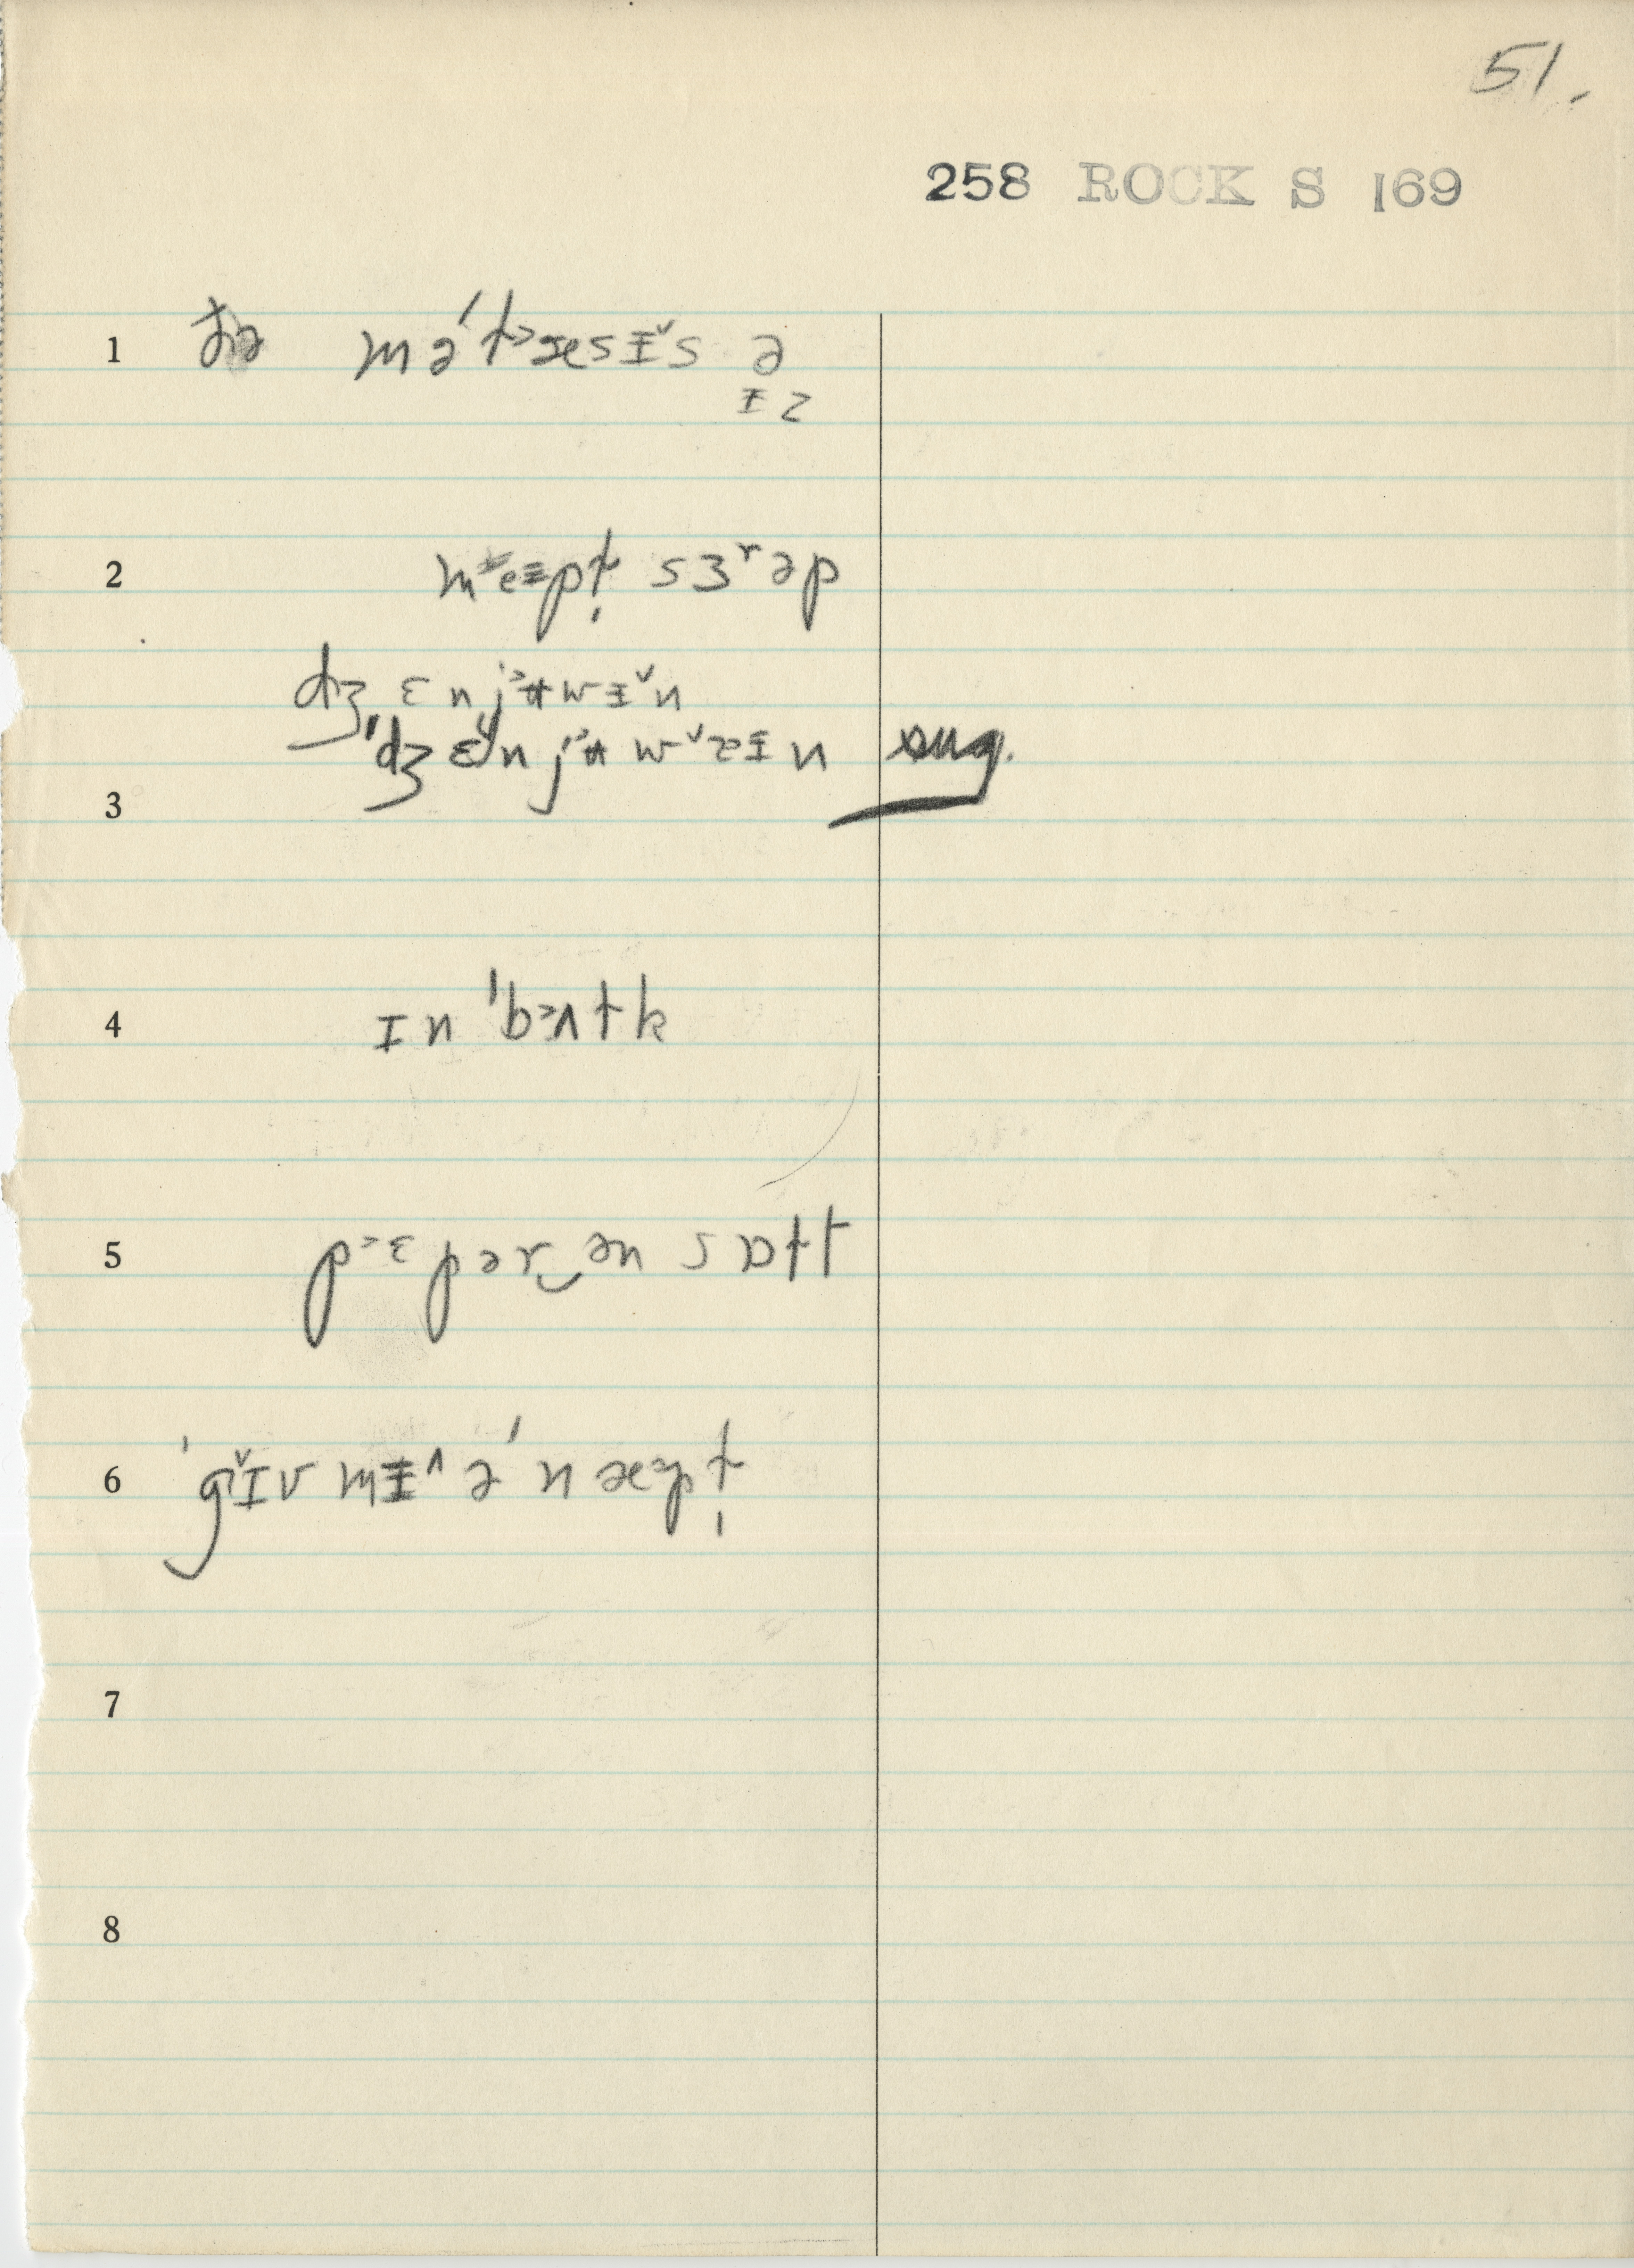 51.
258 ROCK S 169
1 ðə mə́t˃æsɪ̵̌s ə
ɪ̵ z
2 sɜʳəp
dʒ ɛ n j˃ʉ w ɪ̵̌ n
3 ˈdʒ ɛ n j˃ʉ w ɪ̵ n sug.
4 ɪ n ˈb˃ʌ t k
5 p˃ɛ p ə r‿ə n s ɒ l t
6 ˈg ɪ̌ v m ɪ̵^ ə́ n æ p t̩
7
8